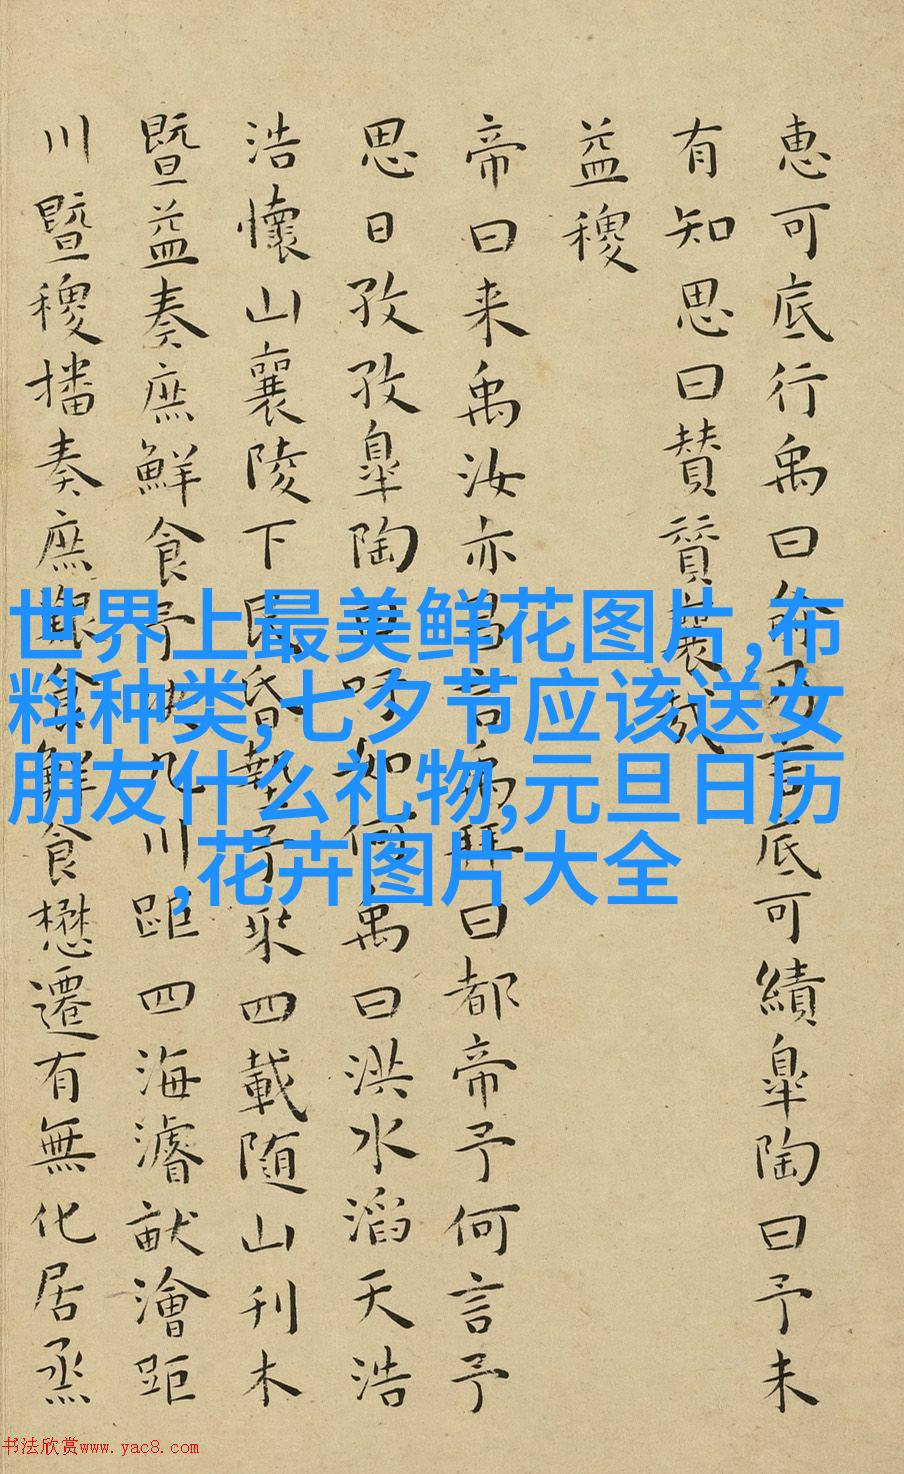 恵可底行禹曰俞乃言底可績皐陶曰予未
有知思曰賛賛襄哉
益稷
帝曰来禹汝亦昌言禹拜曰都帝予何言予
思日孜孜皐陶曰吁如何禹曰洪水滔天浩
浩懷山襄陵下民昏墊予乗四載随山刊木
暨益奏庶鮮食予决九川距四海濬畎澮距
川暨稷播奏庶艱食鮮食懋遷有無化居烝
世界上最美鲜花图片,布
料种类,七夕节应该送女
朋友什么礼物,元旦日历
,花卉图片大全
书法欣赏www.yac8.com